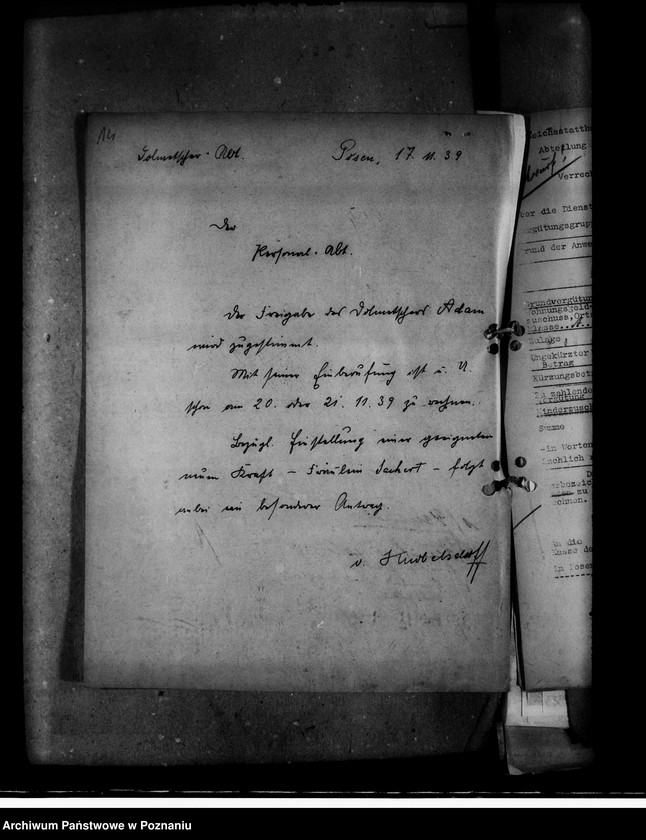 Dolmetscher-Abt.
Posen, 17. 11. 39
Der
Personal-Abt.
Der Freigabe des Dolmetschers Adam
wird zugestimmt.
Mit seiner Einberufung ist u. U.
schon am 20. oder 21. 11. 39 zu rechnen.
Bezügl. Einstellung einer geeigneten
neuen Kraft – Fräulein – folgt
anbei ein besonderer Antrag.
v. Knobelsdorff
Abteilung
Verrech
vor die Dienst
rgütungsgrupp
rund der Anwe
Grundvergütun
ohnungsgeld-
zuschuss, Ort
Klasse
Zulage
Ungekürzter
Betrag
Kürzungsbetr
Zu zahlende
Kinderzusch
Summe
in Worten
zu
An die
Kasse de
in Posen
Archiwum Państwowe w Poznaniu